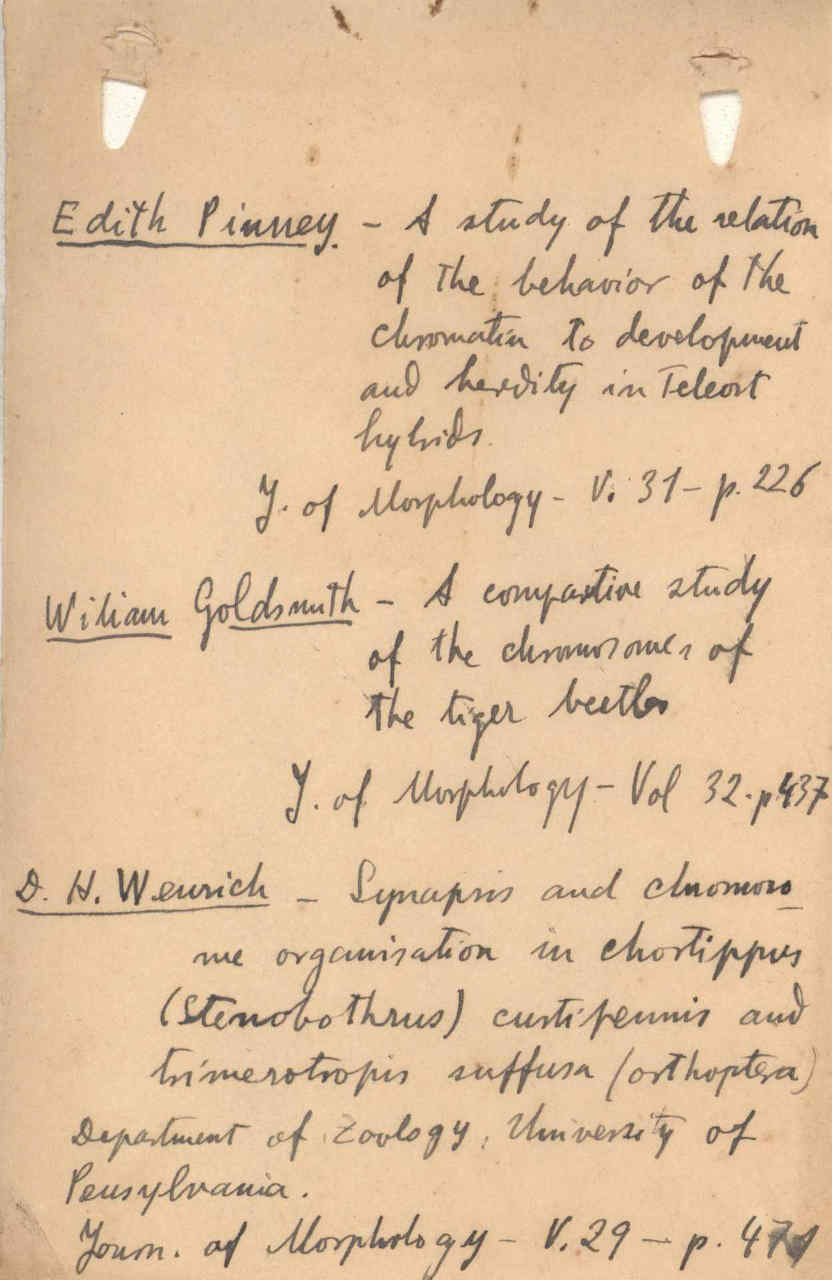 Edith Pinney. - A study of the relation
of the behavior of the
chromatin to development
and heredity in Teleost
hybrids.
J. of Morphology - V. 31 - p. 226
Wiliam Goldsmith - A compartive study
of the chromosomes of
the tiger beetles
J. of Morphology - Vol 32. p 437
D. H. Wenrich - Synapsis and chromoso
me organisation in chortippus
(Stenobothrus) curtipennis and
trimerotropis suffusa (orthoptera)
Department of Zoology, University of
Pensylvania.
Journ. of Morphology - V. 29 - p. 471